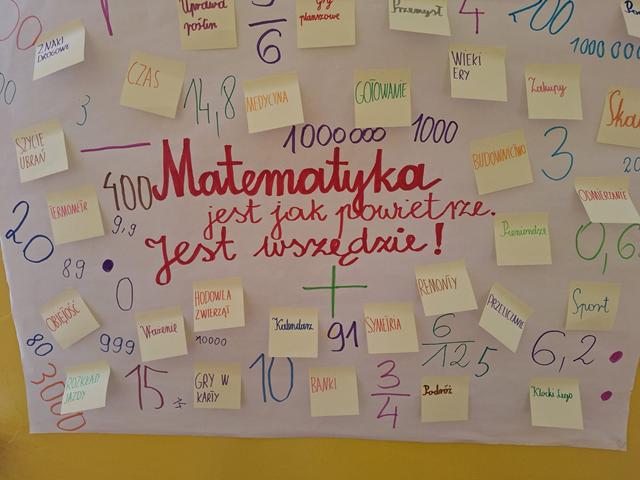 Uprawa
roślin
5
6
Gry
planszowe
Przemysł
4
100
1000000
ZNAKI
DROGOWE
CZAS
14,8
MEDYCYNA
GOTOWANIE
WIEKI
ERY
Zakupy
3
SZYCIE
UBRAŃ
1000000
1000
BUDOWNICTWO
3
20
400
Matematyka
jest jak powietrze.
Jest wszędzie!
TERMOMETR
9,9
20
89
0
ODMIERZANIE
Pieniądze
0,6
+
OBJĘTOŚĆ
Ważenie
HODOWLA
ZWIERZĄT
10000
Kalendarz
91
SYMETRIA
REMONTY
PRZELICZANIE
Sport
80
999
6
125
6,2
3000
ROZKŁADY
JAZDY
15
GRY W
KARTY
10
BANKI
3
4
Podróż
Klocki Lego